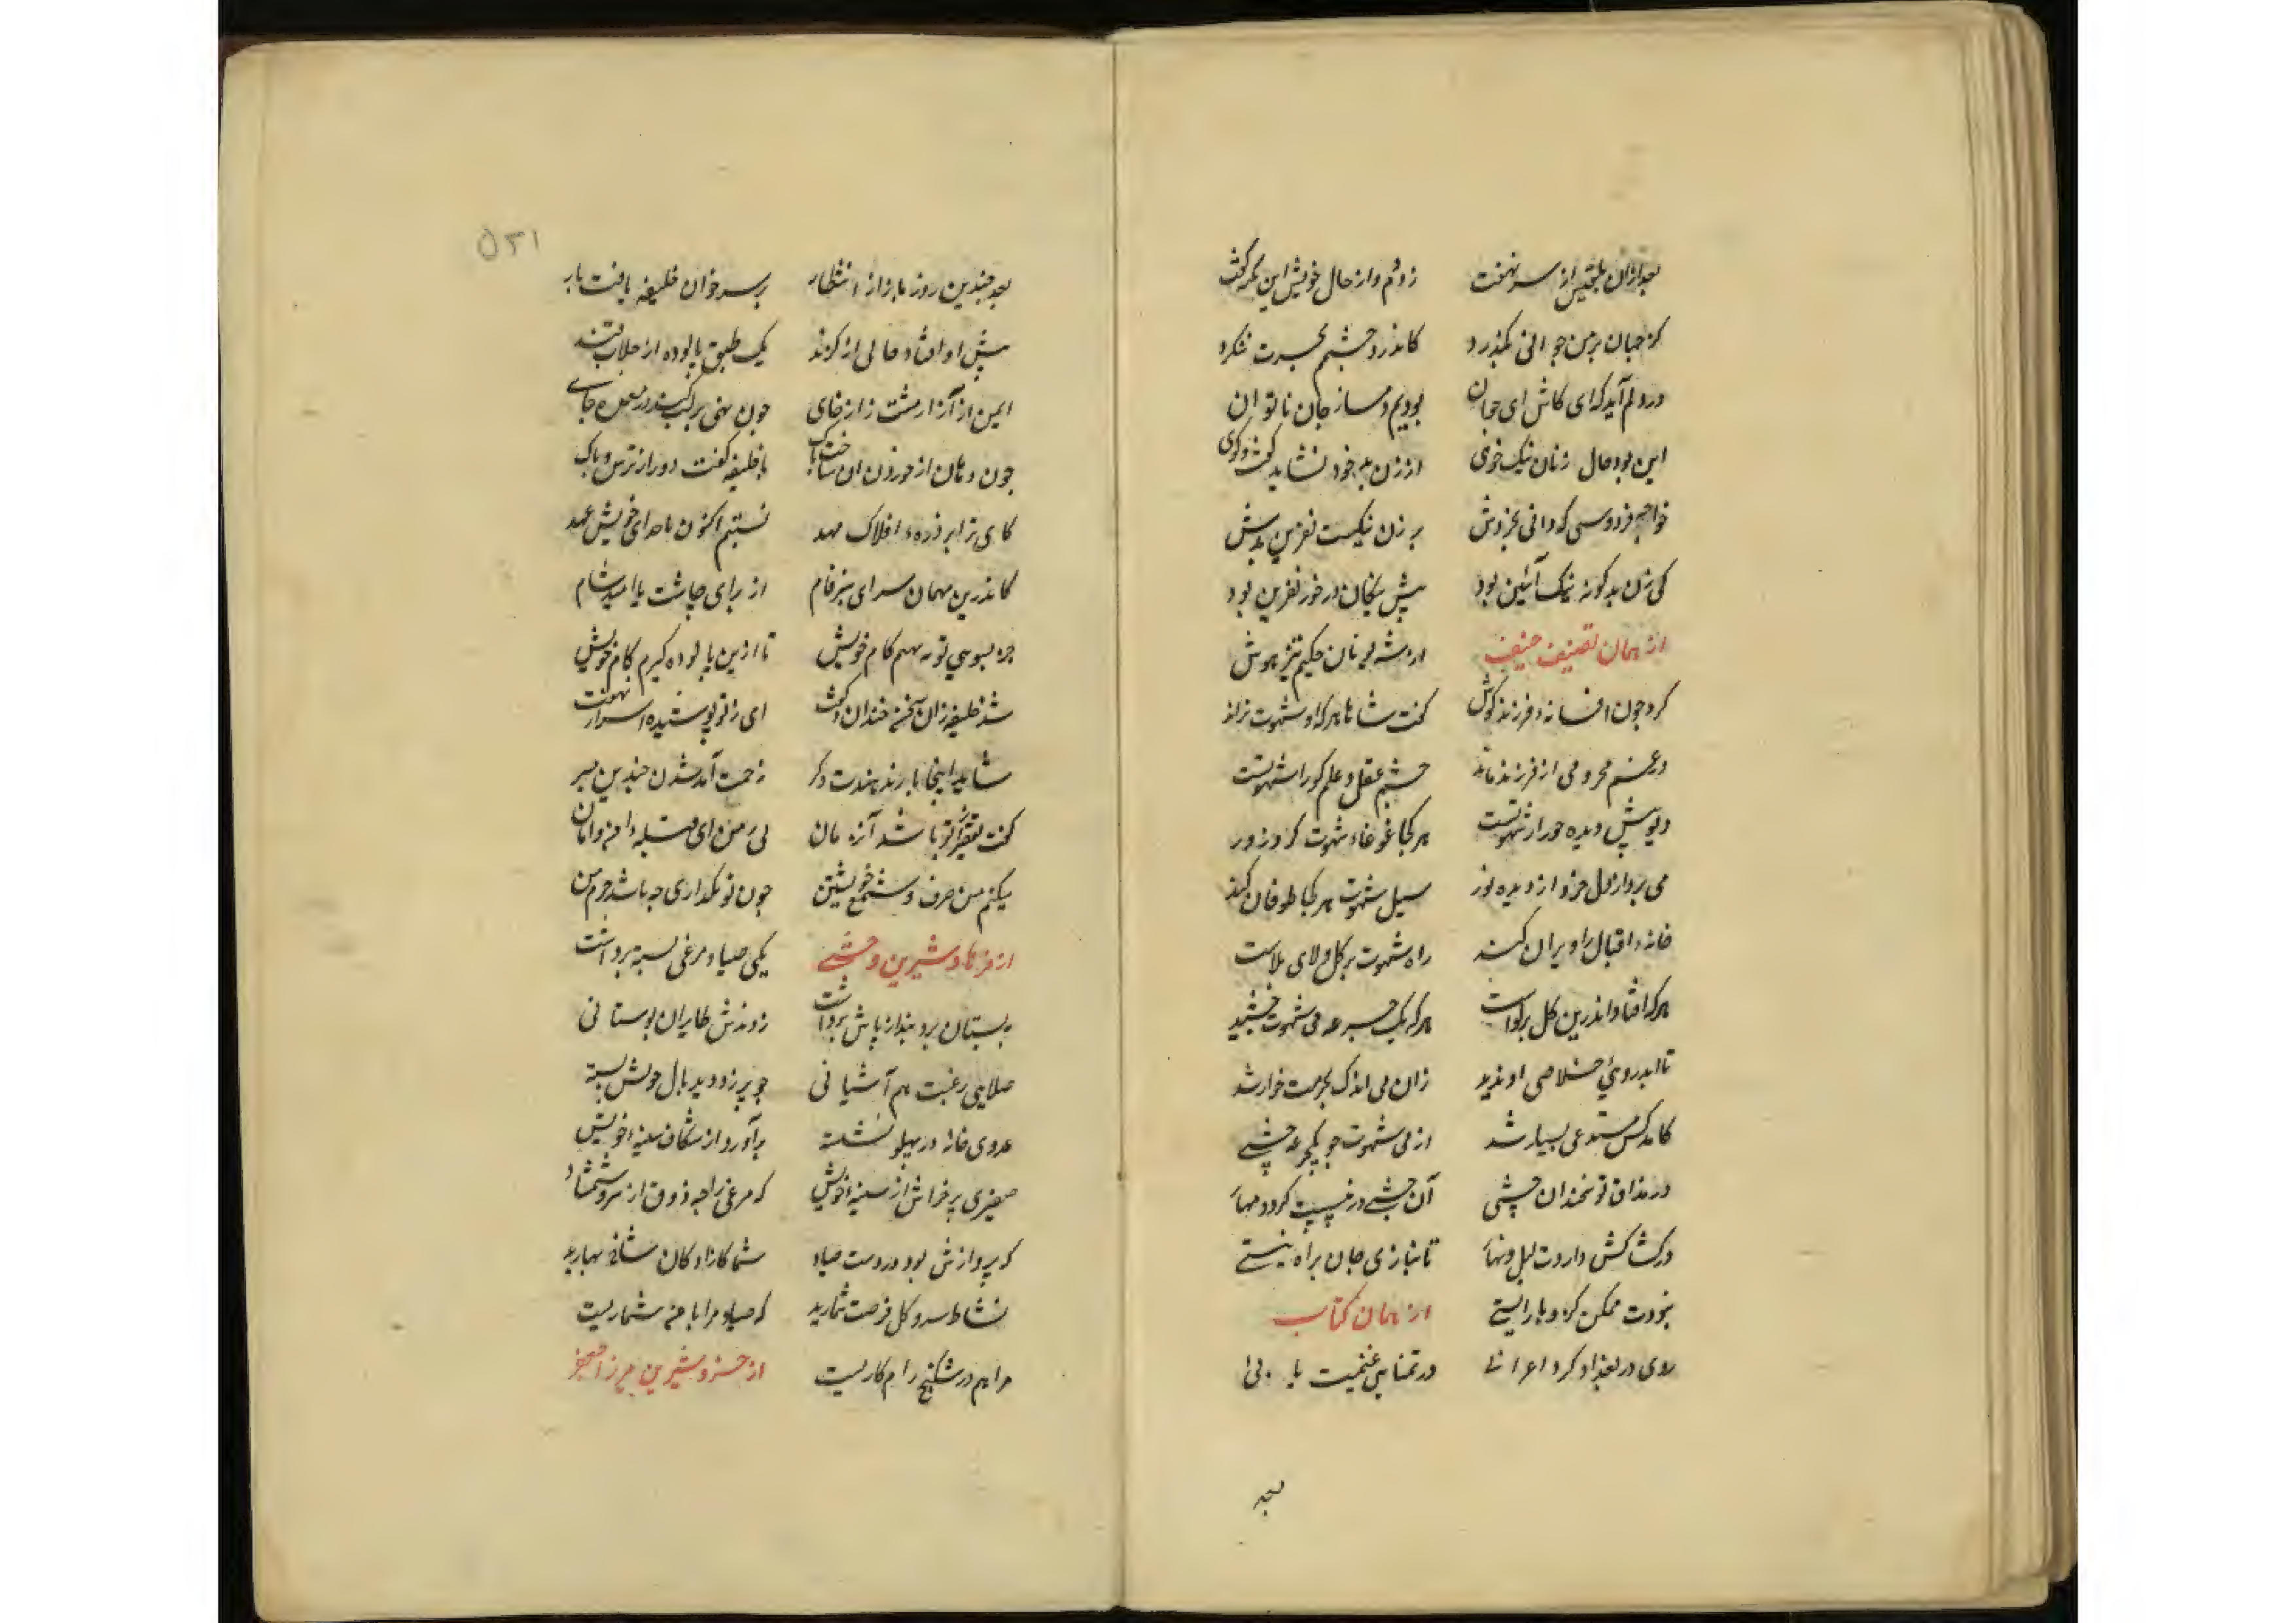 بعد ازان بلقیس از سر نهفت زد دم و از حال خویش این نکته گفت
کز جهان بر من جوانی نگذرد کاندر و چشمم بحسرت ننگرد
در دلم آید که ای کاش ای جوان بودیم دمساز جان ناتوان
این بود حال زنان نیک خوی از زن بد خود نشاید گفت و کوی
خواجه فردوسی که دانی بخردش بر زن نیکست نفرین بدش
کی زن بد کونه نیک آئین بود پیش نیکان در خور نفرین بود
از همان تصنیف حنیف از شه یونان حکیم تیز هوش
کرد چون افسانه فرزند کوش کفت شاها هر که او شهوت نراند
در غم محرومی از فرزند ماند چشم عقل و علم کور از شهوتست
دیو پیش دیده حور از شهوتست هر کجا غوغاء شهوت کرد زور
می برد از دل خرد از دیده نور سیل شهوت هر کجا طوفان کند
خانه اقبال را ویران کند راه شهوت پر کل و لای بلاست
هر که افتاد اندرین کل بر نخاست هر که یک جرعه می شهوت چشید
تا ابد روی خلاصی او ندید زان می اندک بحرمت خوار شد
کاندکش مستدعی بسیار شد از می شهوت چو یکجرعه چشی
در مذاق تو نخند آن چشی آن چشی در غیبت کردد مهار
در کشاکش داردت لیل و نهار تا نبازی جان براه نیستی
نبودت ممکن کزو باز ایستی از همان کتاب
روی در بغداد کرد اعرابئی در تمنایش غنیمت یابی
بعد
۵۳۱
بعد چندین روزها بار از انتظار بر سر خوان خلیفه یافت بار
پیش او افتاد حالی از کزند یک طبق پالوده از جلاب قند
ایمن از آزار مشت ژاژخای چون نهی بر لب کند در معده جای
چون دهان از خوردن آن ساخت پاک با خلیفه کفت دور از ترس و باک
کای ترا بر ذروه افلاک مهد بستم اکنون با خدای خویش عهد
کاندرین مهمان سرای سبز فام از برای چاشت یا امید شام
جز بسوی تو ننهم کام خویش تا ازین پالوده کیرم کام خویش
شد خلیفه زان سخن خندان و کفت ای ز تو پوشیده اسرار نهفت
شاید اینجا بار ندهندت دکر زحمت آمد شدن چندین مبر
کفت تقصیر تو باشد آن زمان نی ز من ای قبله امن و امان
میکنم من صرف وسع خویشتن چون تو نکذاری چه باشد جرم من
از فرهاد و شیرین وحشی یکی صیاد مرغی بسته پر داشت
ببستان برد و بند از پاش برداشت زدندش طایران بوستانی
صلای رغبت هم آشیانی چو پر زد دید بال خویش بسته
عدوی خانه در پهلو نشسته برآورد از شکاف سینه خویش
صفیری پر خراش از سینه خویش که مرغی را چه ذوق از سرو شمشاد
که پروازش بود در دست صیاد شما کازادکان شاخ بهارید
نشاط سرو کل فرصت شمارید که صیاد مرا با من شماریست
مرا هم در شکنج دام کاریست از خسرو شیرین میرزا جعفر